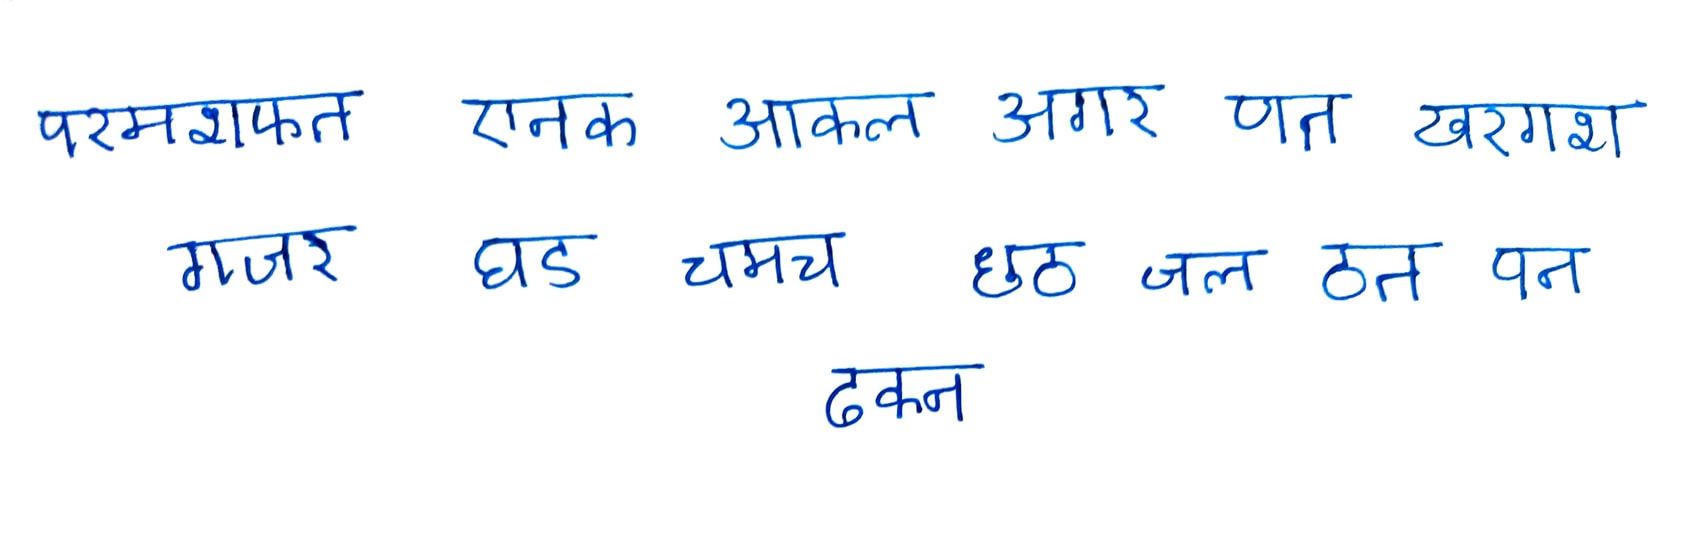 परमशफत एनक आकल अगर णत खरगश
गजर घड चमच छठ जल ठत पन
ढकन